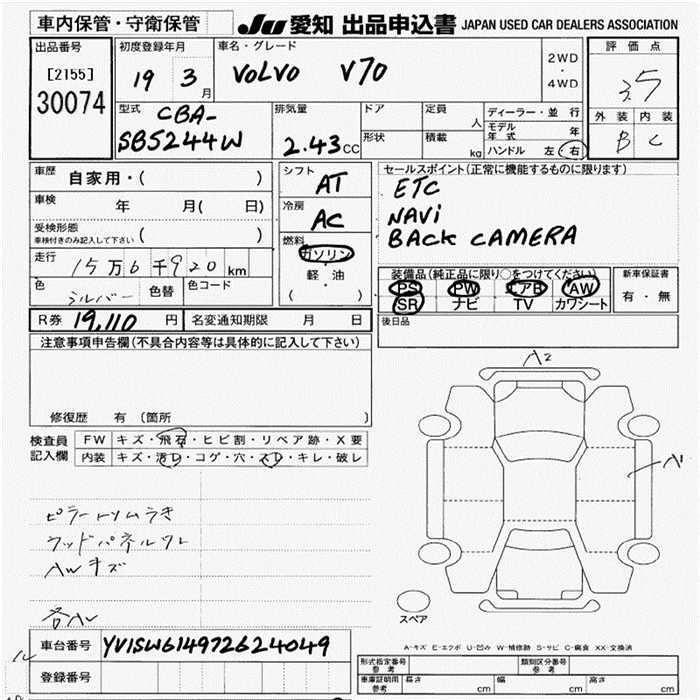 車内保管・守衛保管
JU 愛知 出品申込書 JAPAN USED CAR DEALERS ASSOCIATION
出品番号
[2155]
30074
初度登録年月
19 3 月
車名・グレード
VOLVO V70
2WD
・
4WD
評価点
3.5
外装 内装
B C
型式
CBA-
SB5244W
排気量
2.43 CC
ドア
形状
定員 人
積載 kg
ディーラー・並行
モデル年式 年
ハンドル 左・右
車歴
自家用・( )
車検 年 月( 日)
受検形態
車検付きのみ記入して下さい ( )
走行 15万6千920 km
色 シルバー 色替 色コード
シフト
AT
冷房
AC
燃料
ガソリン
軽・油
( )
セールスポイント(正常に機能するものに限ります)
ETC
NAVi
BACK CAMERA
装備品(純正品に限り○をつけてください)
PS PW エアB AW
SR ナビ TV カワシート
新車保証書
有・無
R券 19,110 円
名変通知期限 月 日
後日品
注意事項申告欄(不具合内容等は具体的に記入して下さい)
修復歴 有(箇所 )
検査員
記入欄
FW キズ・飛石・ヒビ割・リペア跡・X要
内装 キズ・汚レ・コゲ・穴・スレ・キレ・破レ
A2
A1
ピラートリムうき
ウッドパネルワレ
AWキズ
各AU
スペア
A-キズ E-エクボ U-凹み W-補修跡 S-サビ C-腐食 XX-交換済
車台番号 YV1SW614972624049
登録番号
型式指定番号
参考
類別区分番号
参考
車庫証明用
参考
長さ cm 幅 cm 高さ cm